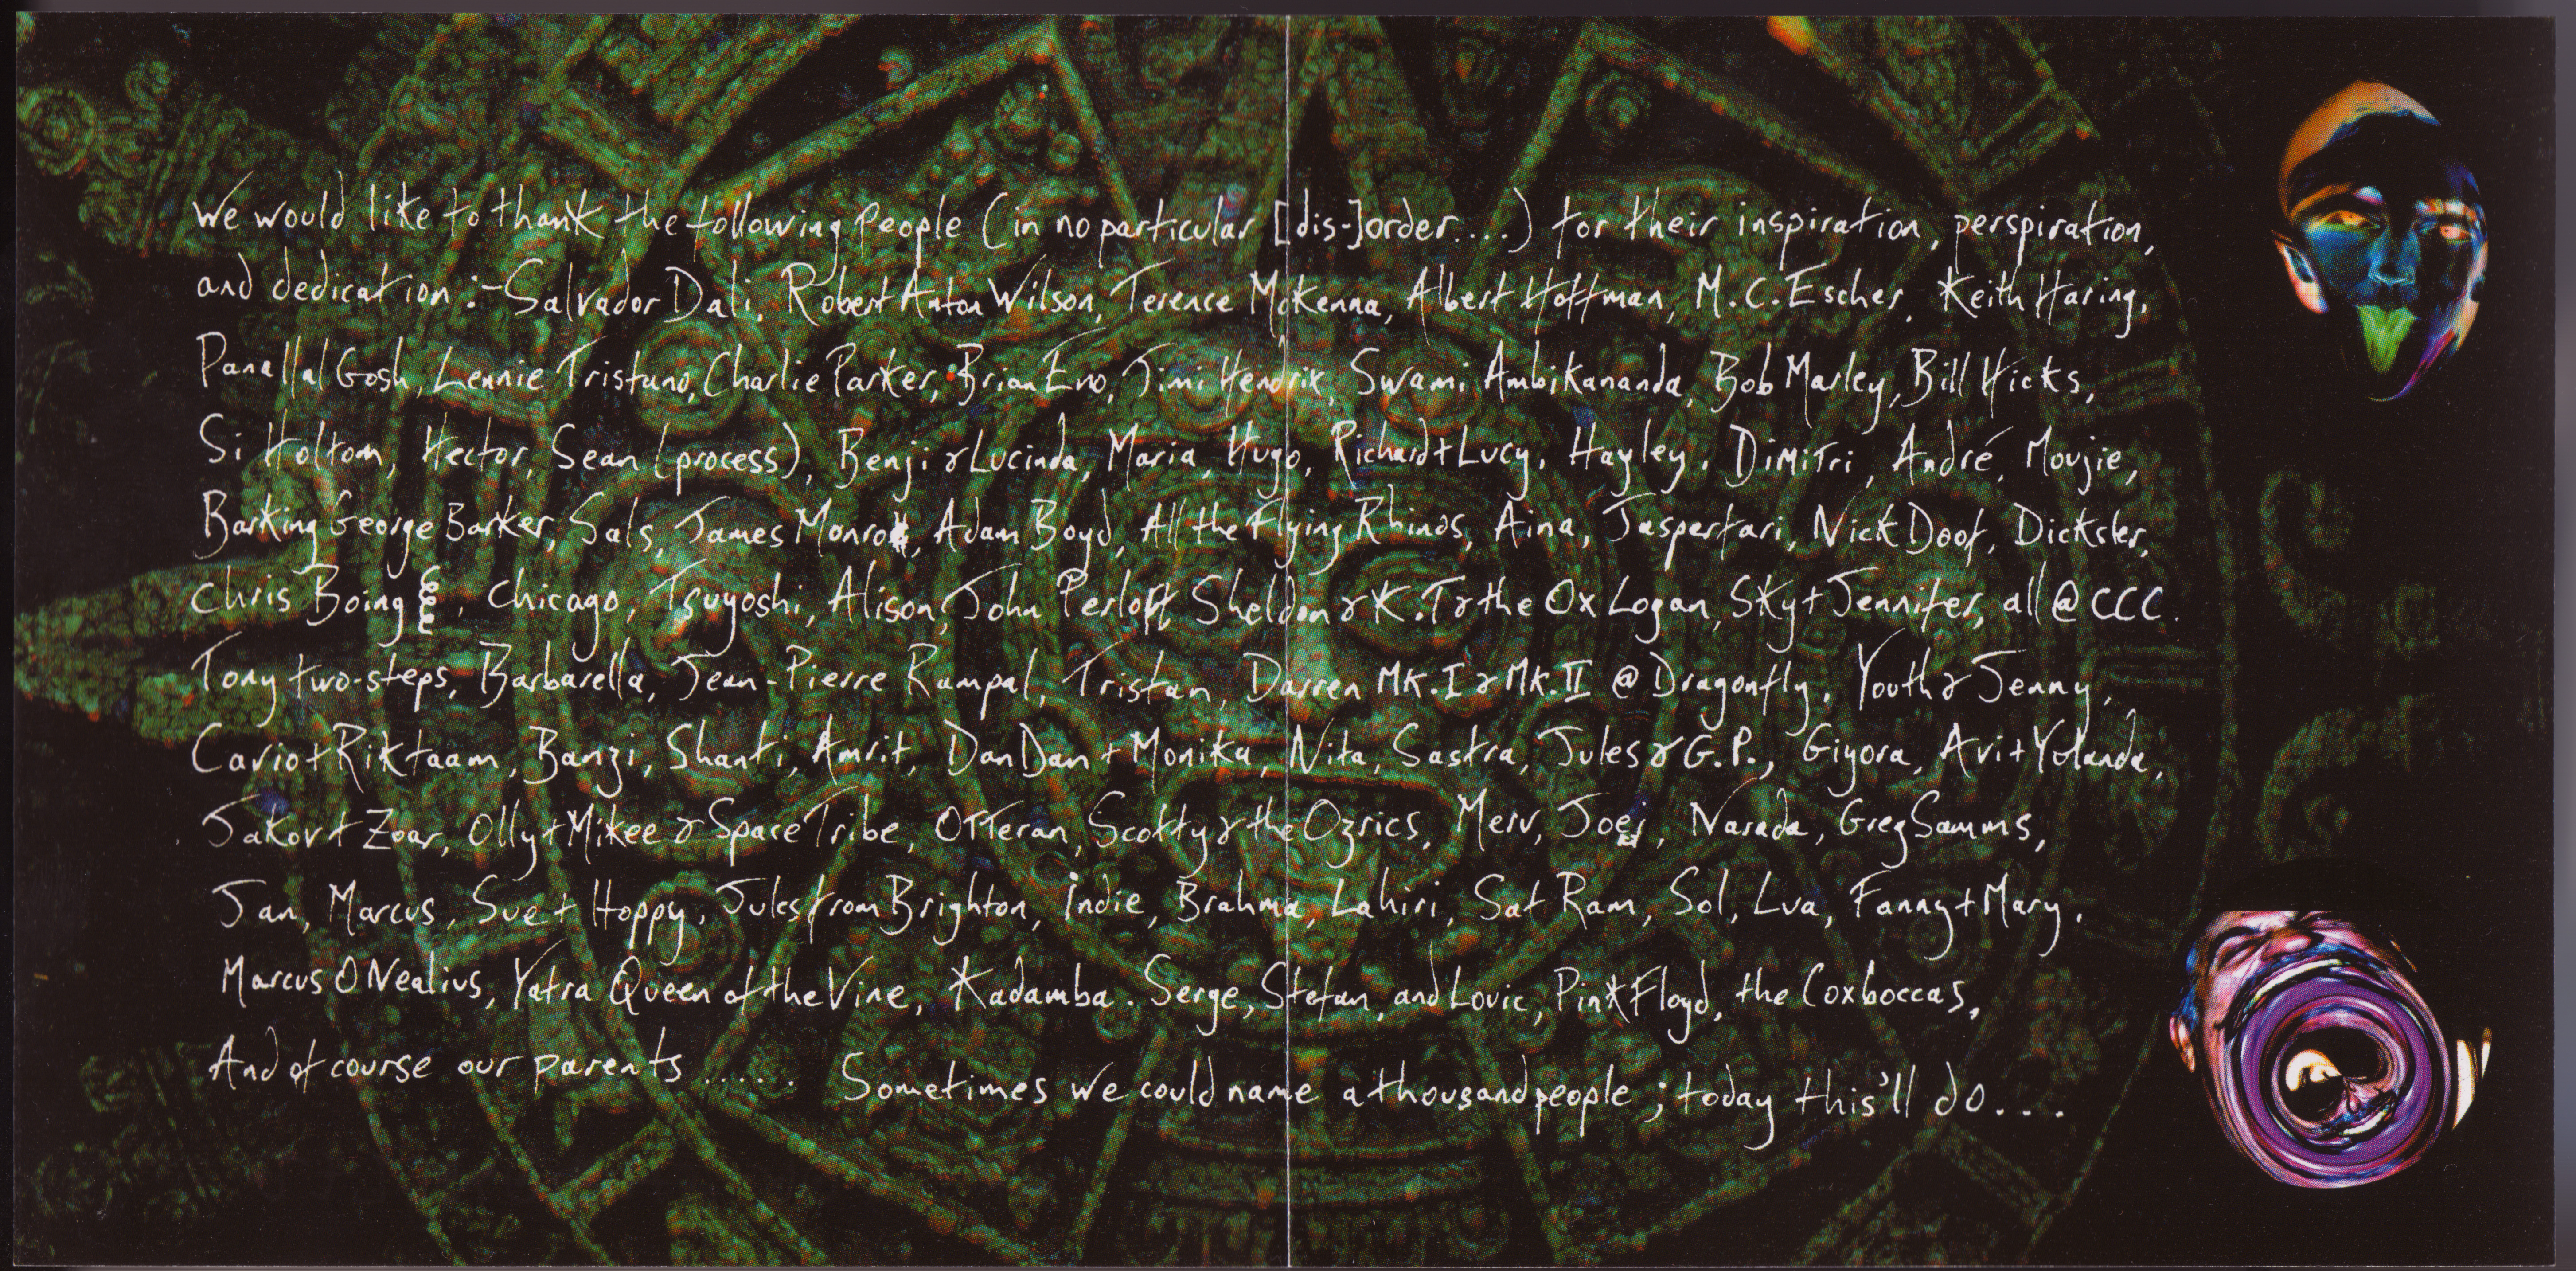 We would like to thank the following People (in no particular [dis-]order....) for their inspiration, perspiration,
and dedication :- Salvador Dali, Robert Anton Wilson, Terence McKenna, Albert Hoffman, M.C. Escher, Keith Haring,
Panallal Gosh, Lennie Tristano, Charlie Parker, Brian Eno, Jimi Hendrix, Swami Ambikananda, Bob Marley, Bill Hicks,
Si Holtom, Hector, Sean (process), Benji & Lucinda, Maria, Hugo, Richard + Lucy, Hayley, Dimitri, André, Moujie,
Barking George Barker, Sals, James Monro, Adam Boyd, All the Flying Rhinos, Aina, Jaspertari, Nick Doof, Dickster,
Chris Boing, Chicago, Tsuyoshi, Alison, John Perloff, Sheldon & K.T & the Ox Logan, Sky + Jennifer, all @ CCC.
Tony two-steps, Barbarella, Jean-Pierre Rampal, Tristan, Darren MK.I & MK.II @ Dragonfly, Youth & Jenny,
Cavio + Riktaam, Banzi, Shanti, Amrit, Dan Dan + Monika, Nita, Sastra, Jules & G.P., Giyora, Avi + Yolanda,
Jakov + Zoar, Olly + Mikee & Space Tribe, OTTeran, Scotty & the Ozrics, Merv, Joei, Narada, Greg Samms,
Jan, Marcus, Sue + Hoppy, Jules from Brighton, Indie, Brahma, Lahiri, Sat Ram, Sol, Lua, Fanny + Mary.
Marcus O Nealius, Yatra Queen of the Vine, Kadamba. Serge, Stefan, and Lovic, Pink Floyd, the Coxboccas,
And of course our parents..... Sometimes we could name a thousand people ; today this'll do...